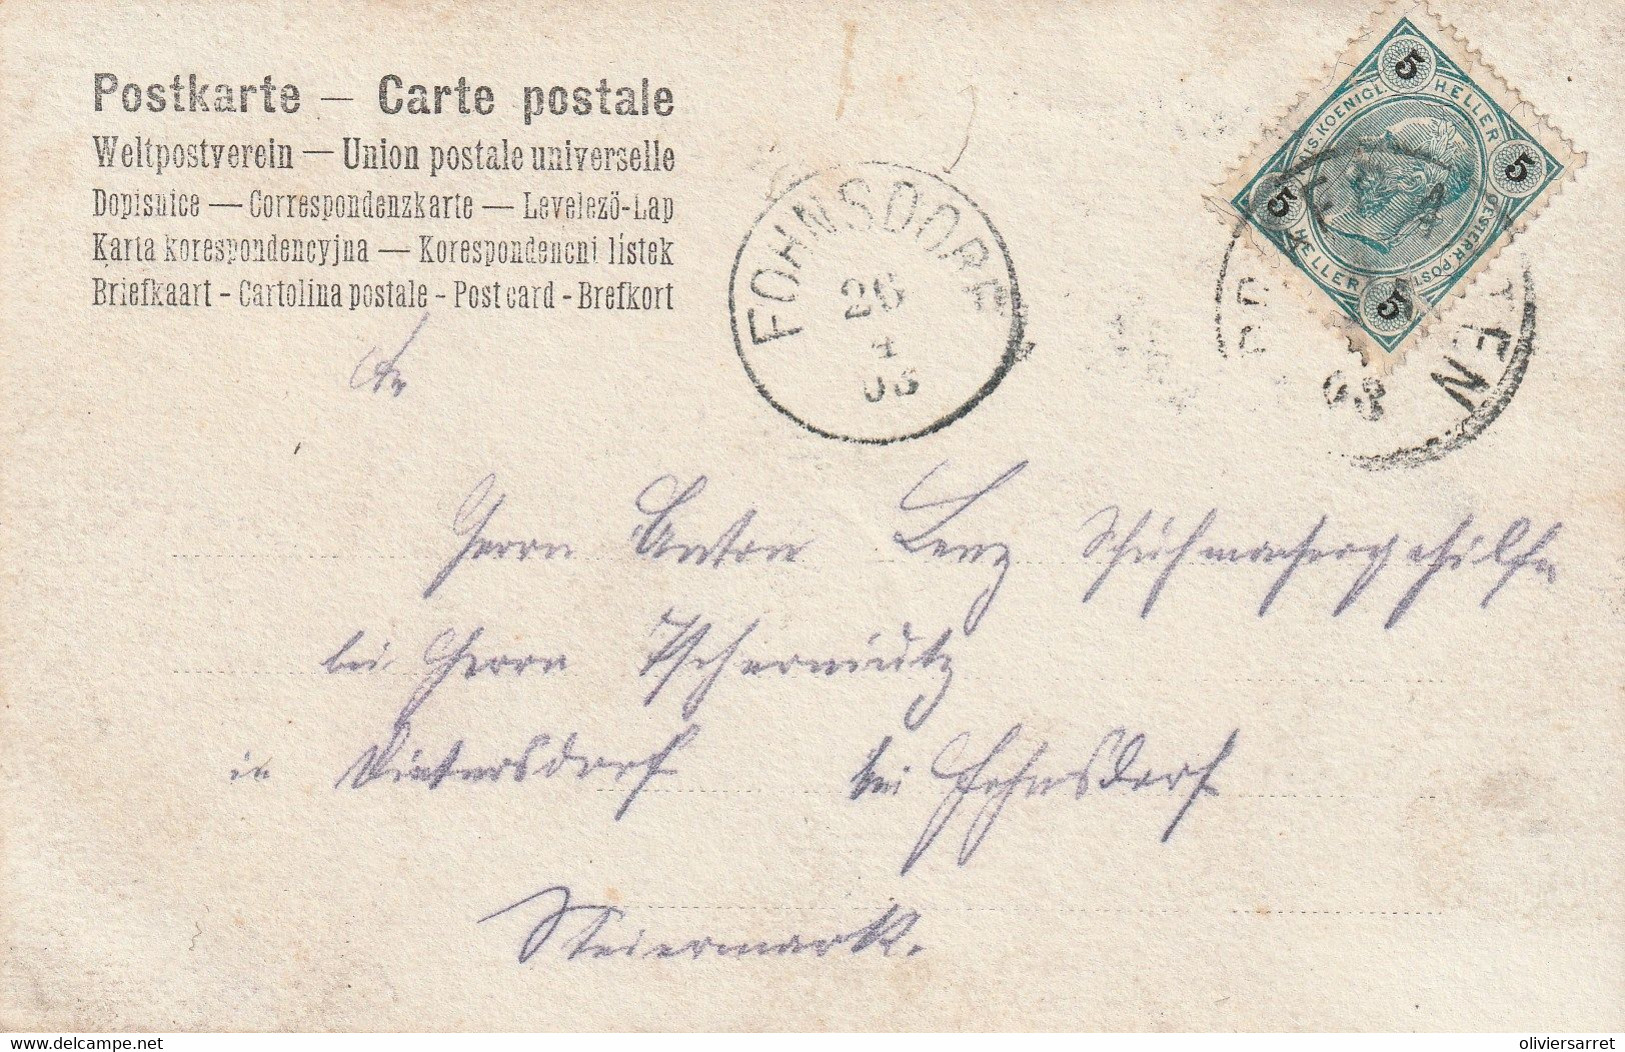 Postkarte — Carte postale
Weltpostverein — Union postale universelle
Dopisnice — Correspondenzkarte — Levelező-Lap
Karta korespondencyjna — Korespondencni lístek
Briefkaart - Cartolina postale - Post card - Brefkort
FOHNSDORF
26
4
03
5 HELLER
5
5 HELLER
5
OESTERR. POST
03
An
Herrn Anton Lenz Schuhmachergehilfe
bei Herrn
in Dietersdorf bei Fohnsdorf
Steiermark.
delcampe.net
oliviersarret